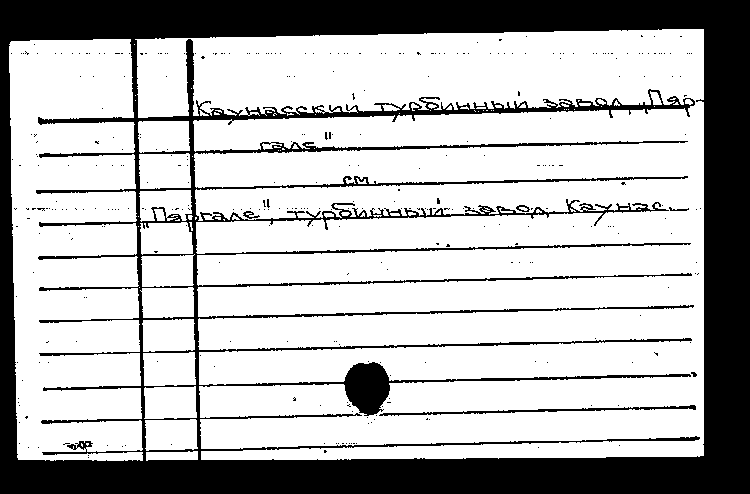 Каунасский турбинный завод „Пяр-
гале"
см.
„Пяргале", турбинный завод, Каунас.